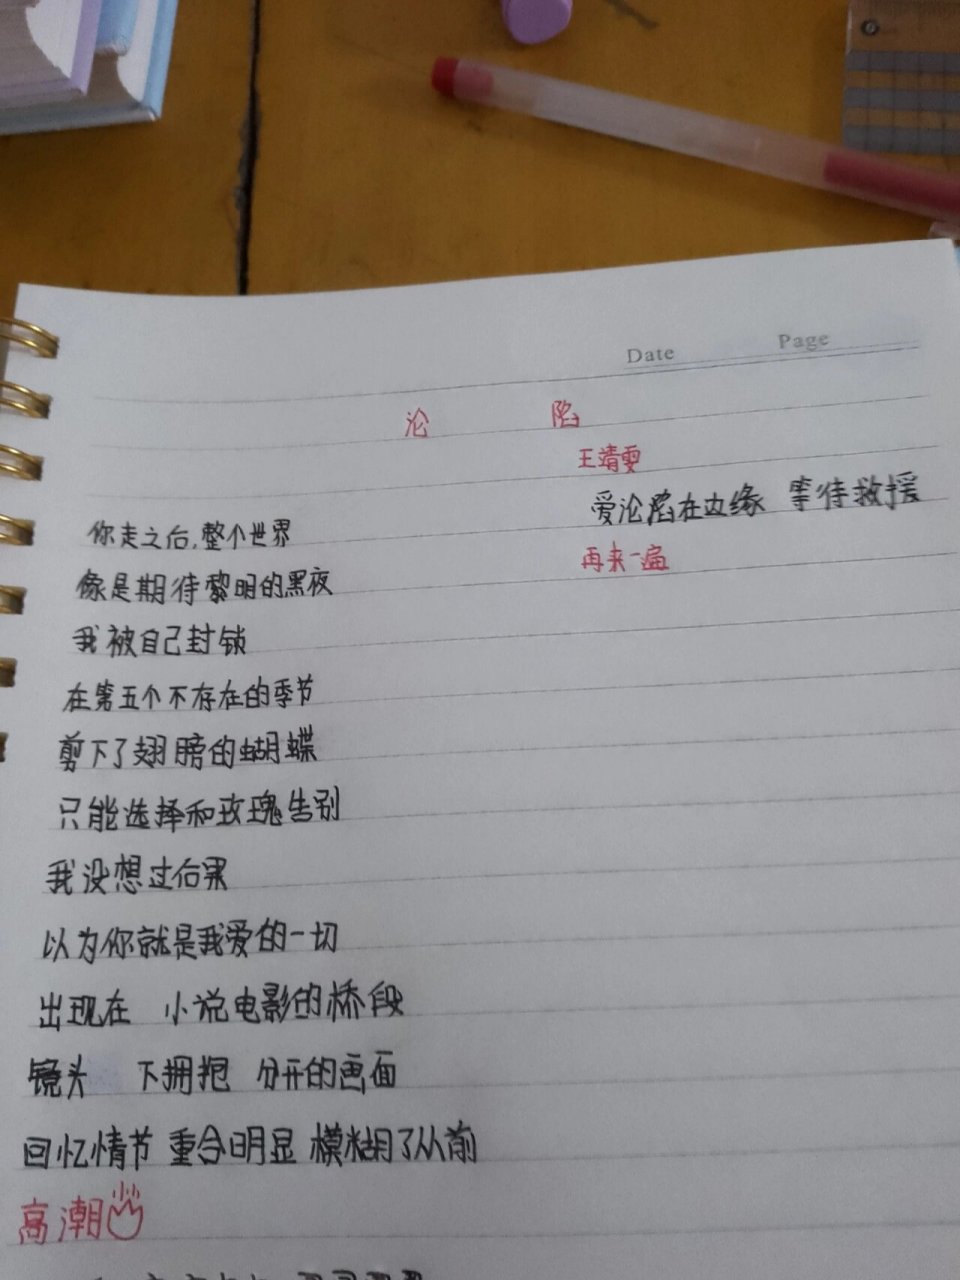 Date Page
沦 陷
王靖雯
爱沦陷在边缘 等待救援
再来一遍
你走之后,整个世界
像是期待黎明的黑夜
我被自己封锁
在第五个不存在的季节
剪下了翅膀的蝴蝶
只能选择和玫瑰告别
我没想过后果
以为你就是我爱的一切
出现在 小说电影的桥段
镜头 下拥抱 分开的画面
回忆情节 重合明显 模糊了从前
高潮